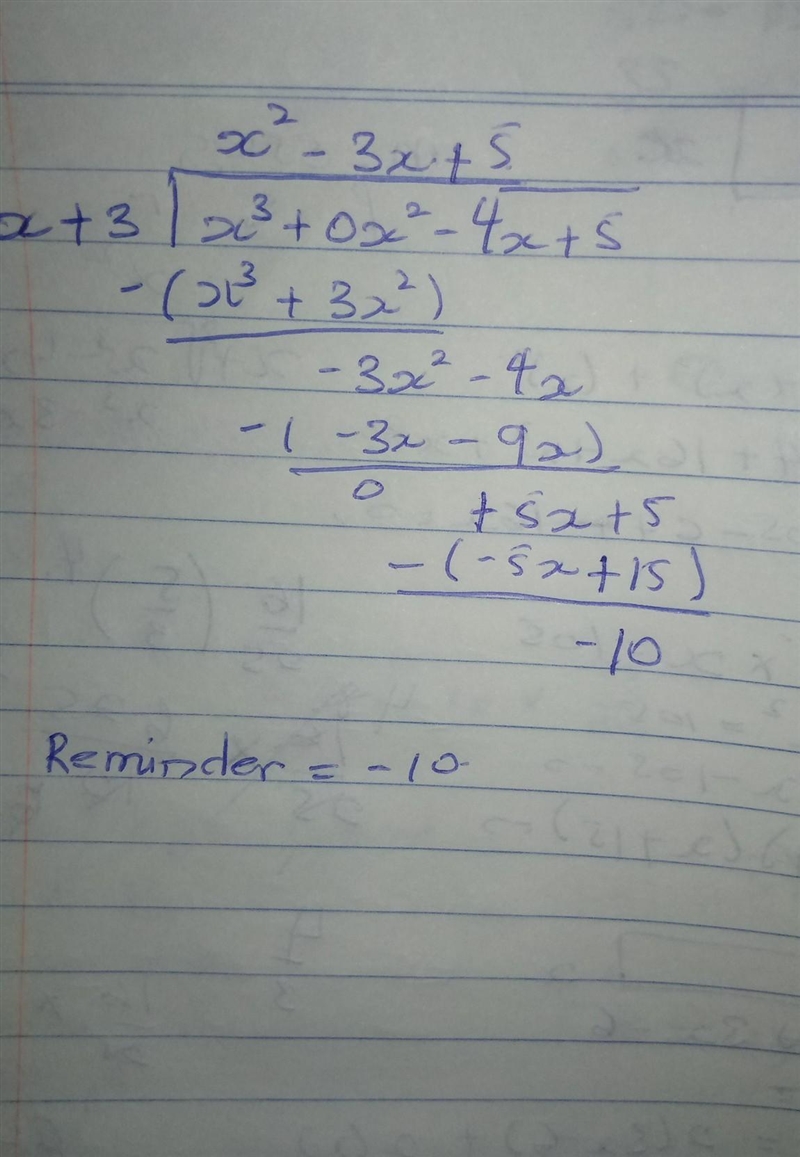 x² - 3x + 5
x + 3 | x³ + 0x² - 4x + 5
-(x³ + 3x²)
-3x² - 4x
-( -3x - 9x)
0 + 5x + 5
-(-5x + 15)
-10
Reminder = -10